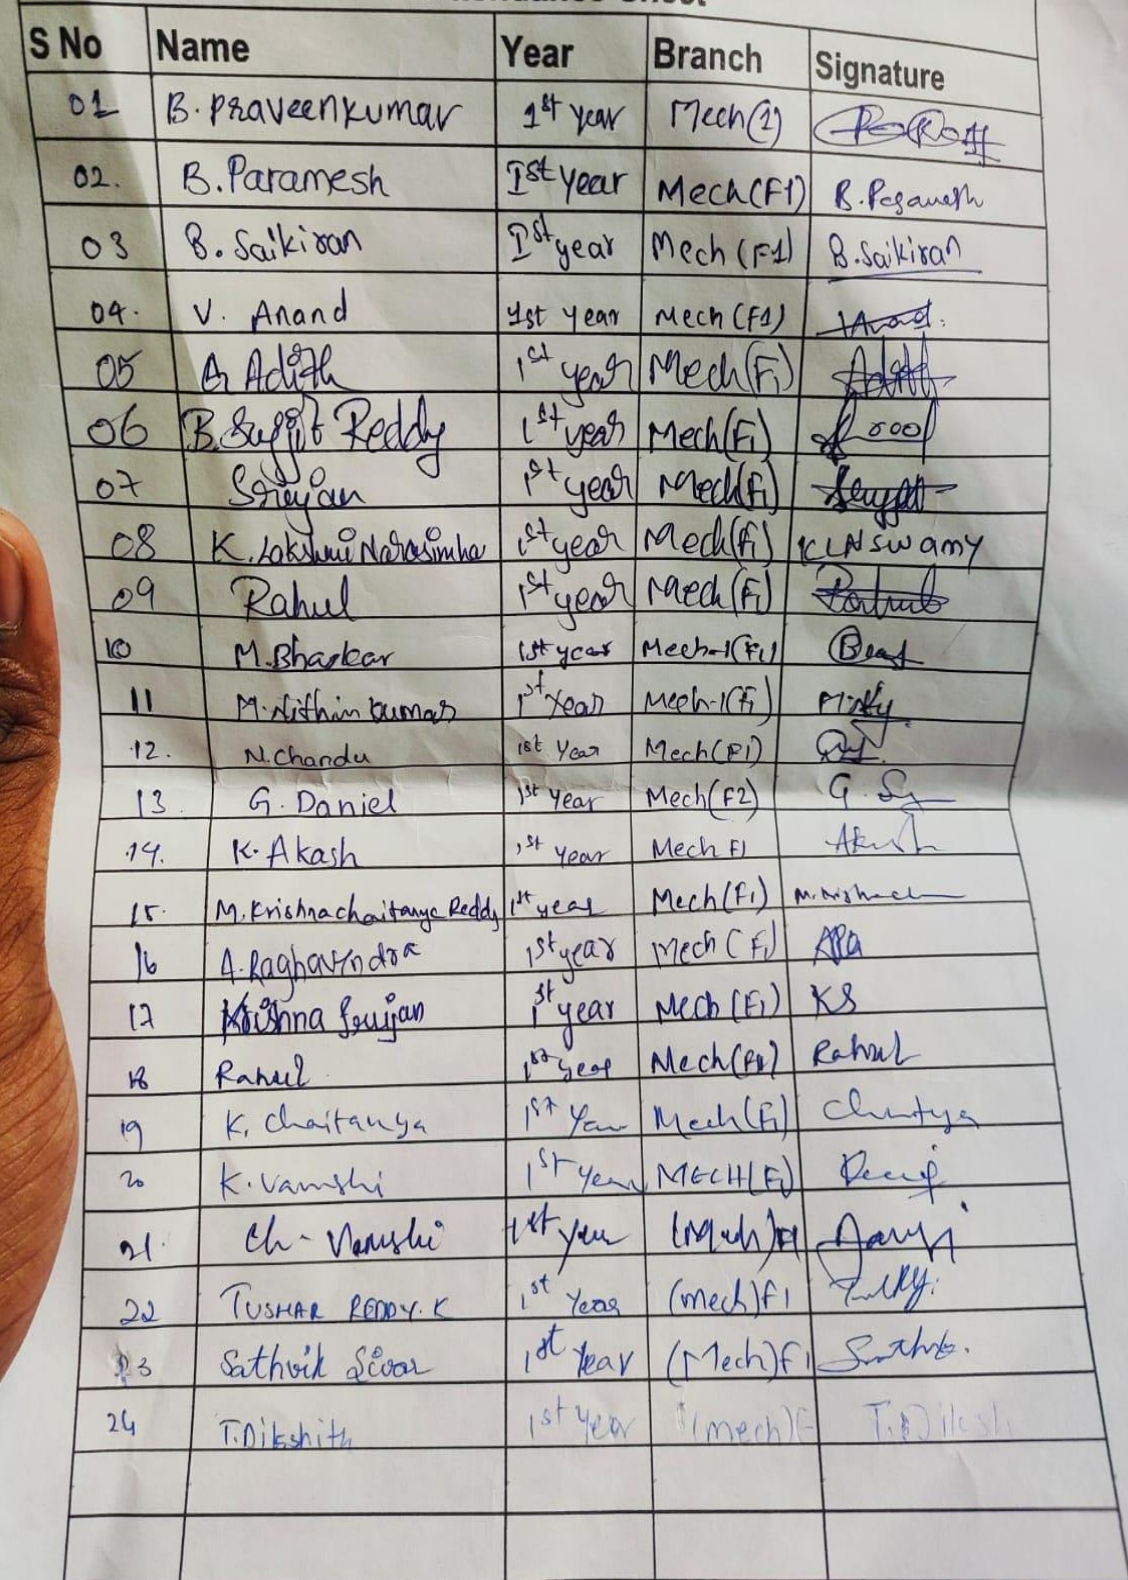 S No Name Year Branch Signature
01 B. Praveenkumar 1st year Mech(1)
02. B. Paramesh Ist year Mech(F1) B. Paramesh
03 B. Saikiran Ist year Mech (F1) B. Saikiran
04. V. Anand 1st year Mech (F1) Anad.
05 A Adith 1st year Mech(F1) Adith
06 B. Sujjit Reddy 1st year Mech(F1)
07 Srujan 1st year Mech(F1)
08 K. Lakshmi Narasimha 1st year Mech(F1) KLNSWAMY
09 Rahul 1st year Mech(F1) Rahul
10 M. Bhaskar 1st year Mech-1(F1)
11 M. Nithin kumar 1st Year Mech-1(F1)
12. N. Chandu 1st Year Mech(F1)
13 G. Daniel 1st Year Mech(F2) G.
14. K. Akash 1st Year Mech F1 Akash
15. M. Krishnachaitanya Reddy 1st year Mech(F1)
16 A. Raghavendra 1st year Mech (F1)
17 Krishna Srujan 1st year Mech (F1) KS
18 Rahul 1st year Mech(F1) Rahul
19 K. Chaitanya 1st Year Mech(F1)
20 K. Vamshi 1st Year MECH(F1)
21. Ch - Vamshi 1st year (Mech)F1
22 TUSHAR REDDY. K 1st Year (mech)F1
23 Sathvik 1st Year (Mech)F1
24 T. Dikshith 1st Year (mech)F T. Diksh